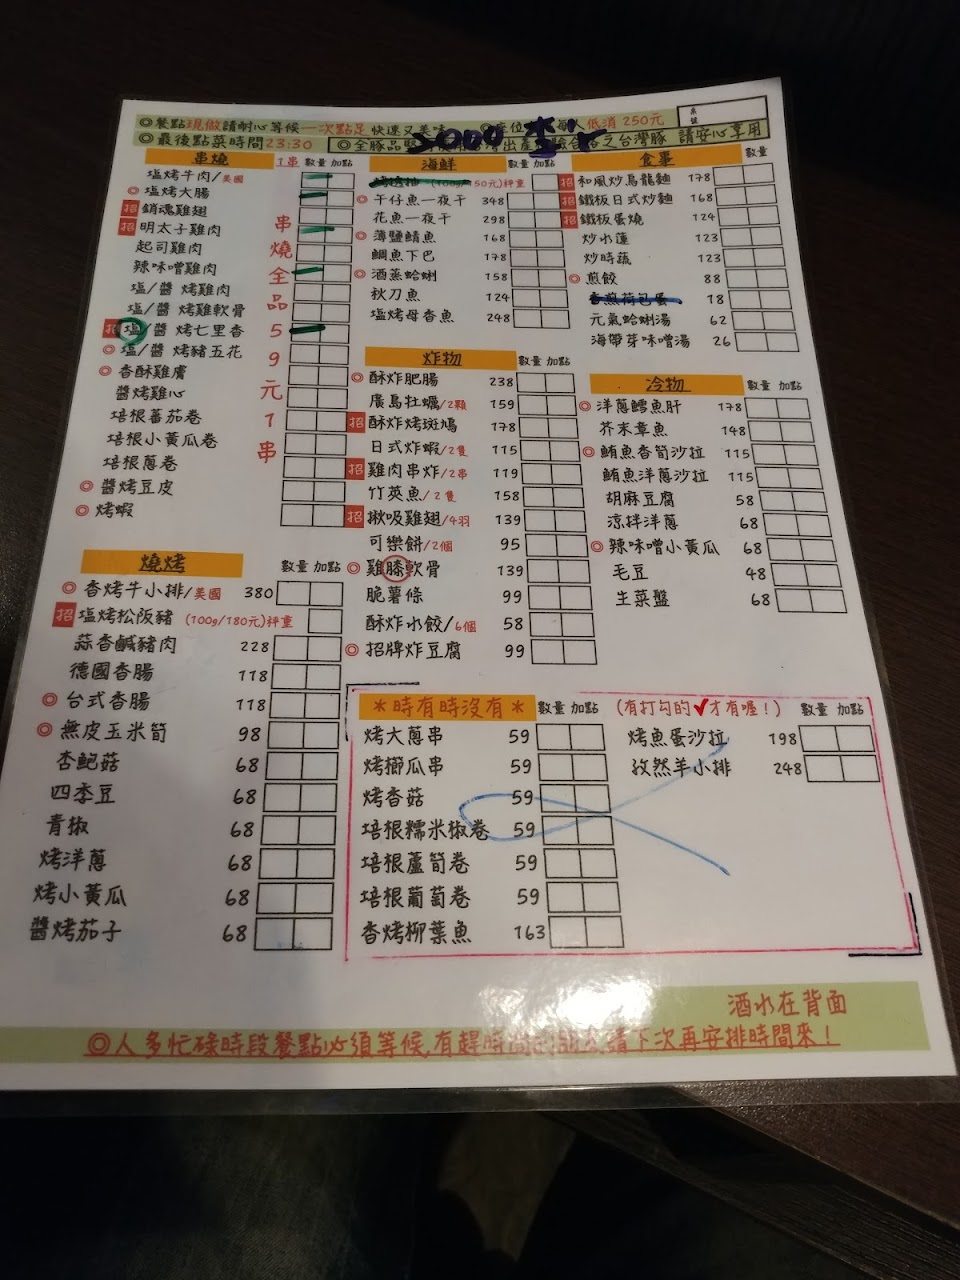 ◎餐點現做請耐心等候 一次點足 快速又美味
低消 250元
桌號
◎最後點菜時間23:30
◎全豚品
之台灣豚 請安心享用
串燒 1串 數量 加點
塩烤牛肉/美國
◎塩烤大腸
招 銷魂雞翅
招 明太子雞肉
起司雞肉
辣味噌雞肉
塩/醬 烤雞肉
塩/醬 烤雞軟骨
招 塩/醬 烤七里香
◎塩/醬 烤豬五花
◎香酥雞膚
醬烤雞心
培根蕃茄卷
培根小黃瓜卷
培根蔥卷
◎醬烤豆皮
◎烤蝦
串燒全品59元1串
燒烤 數量 加點
◎香烤牛小排/美國 380
招 塩烤松阪豬 (100g/180元)秤重
蒜香鹹豬肉 228
德國香腸 118
◎台式香腸 118
◎無皮玉米筍 98
杏鮑菇 68
四季豆 68
青椒 68
烤洋蔥 68
烤小黃瓜 68
醬烤茄子 68
海鮮 數量 加點
(100g/150元)秤重
◎午仔魚一夜干 348
花魚一夜干 298
◎薄鹽鯖魚 168
鯛魚下巴 178
◎酒蒸蛤蜊 158
秋刀魚 124
塩烤母香魚 248
炸物 數量 加點
◎酥炸肥腸 238
廣島牡蠣/2顆 159
招 酥炸烤斑鳩 178
日式炸蝦/2隻 115
招 雞肉串炸/2串 119
竹莢魚/2隻 158
招 揪吸雞翅/4羽 139
可樂餅/2個 95
◎雞膝軟骨 139
脆薯條 99
酥炸水餃/6個 58
◎招牌炸豆腐 99
食事 數量
招 和風炒烏龍麵 178
招 鐵板日式炒麵 168
招 鐵板蛋燒 124
炒水蓮 123
炒時蔬 123
◎煎餃 88
香煎荷包蛋 18
元氣蛤蜊湯 62
海帶芽味噌湯 26
冷物 數量 加點
◎洋蔥鱈魚肝 178
芥末章魚 148
◎鮪魚香筍沙拉 115
鮪魚洋蔥沙拉 115
胡麻豆腐 58
涼拌洋蔥 68
◎辣味噌小黃瓜 68
毛豆 48
生菜盤 68
*時有時沒有* 數量 加點 (有打勾的✓才有喔!) 數量 加點
烤大蔥串 59
烤櫛瓜串 59
烤香菇 59
培根糯米椒卷 59
培根蘆筍卷 59
培根葡萄卷 59
香烤柳葉魚 163
烤魚蛋沙拉 198
孜然羊小排 248
酒水在背面
◎人多忙碌時段餐點必須等候,有趕時間 請下次再安排時間來!